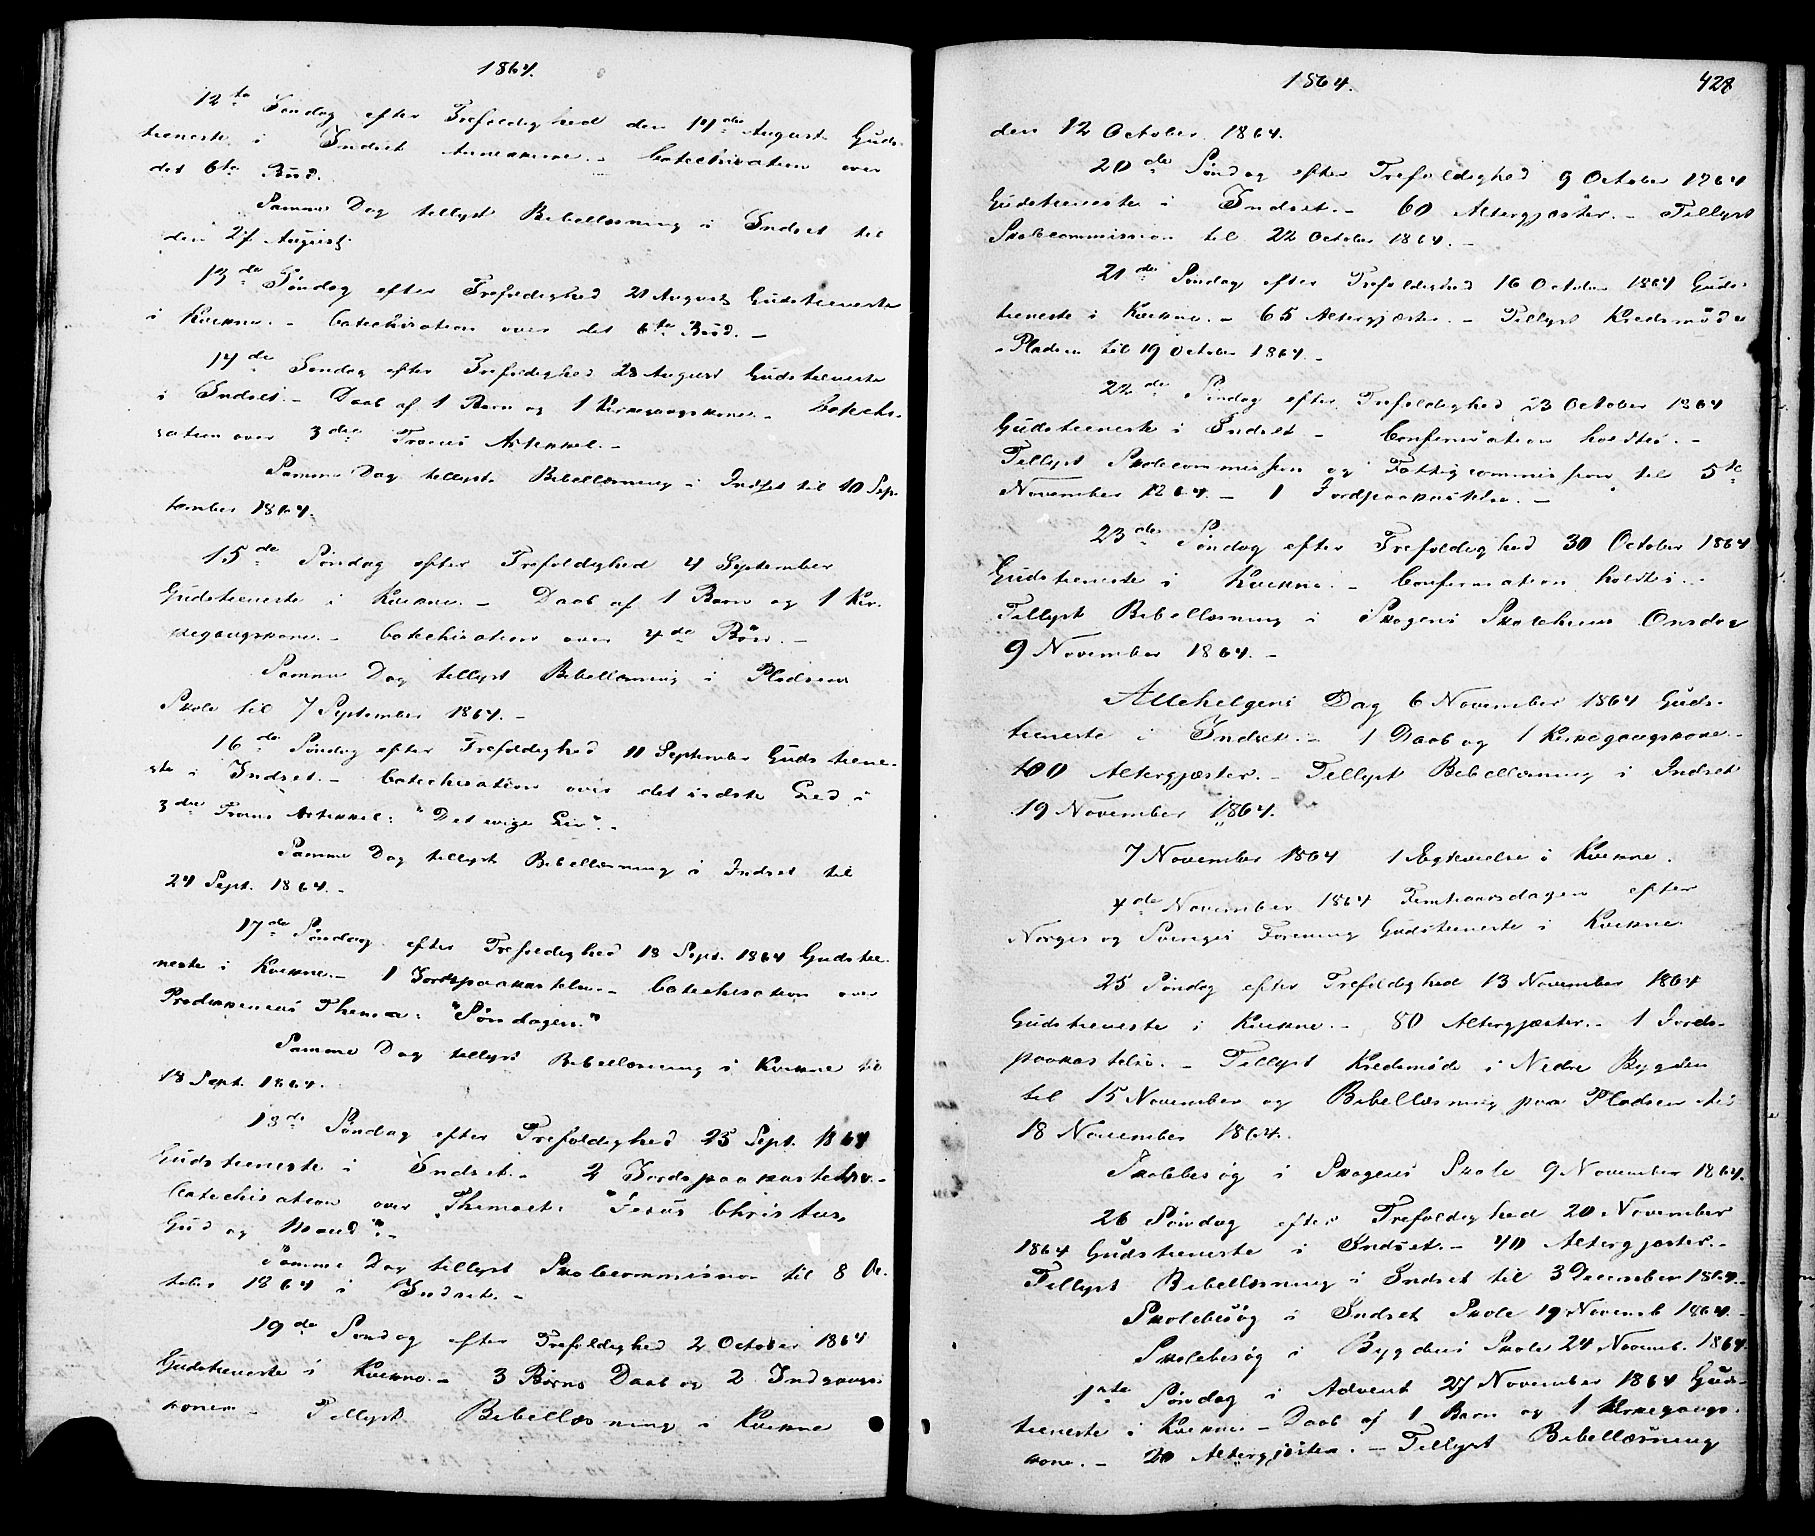 1864.
12te Søndag efter Trefoldighed den 14de August Guds-
tieneste i Indset Annexkirke. - Catechisation over
det 6te Bud.
Samme Dag tillyst Bibellæsning i Indset til
den 27 August.
13de Søndag efter Trefoldighed 21 August Gudstieneste
i Kvikne. - Catechisation over det 6te Bud. -
14de Søndag efter Trefoldighed 28 August Gudstieneste
i Indset. - Daab af 1 Barn og 1 Kirkegangskone. - Catechi-
sation over 3die Troens Artikkel. -
Samme Dag tillyst Bibellæsning i Indset til 10 Sep-
tember 1864.
15de Søndag efter Trefoldighed 4 September
Gudstieneste i Kvikne. - Daab af 1 Barn og 1 Kir-
kegangskone. - Catechisation over 4de Bøn. -
Samme Dag tillyst Bibellæsning i Pladsens
Skole til 7 September 1864. -
16de Søndag efter Trefoldighed 11 September Guds tiene-
ste i Indset. - Catechisation over det sidste Led i
3die Troens Artikkel: "Det evige Liv". -
Samme Dag tillyst Bibellæsning i Indset til
24 Sept. 1864. -
17de Søndag efter Trefoldighed 18 Sept. 1864 Gudstie-
neste i Kvikne. - 1 Jordspaakastelse. - Catechisation over
Prædikenens Thema: "Søndagen."
Samme Dag tillyst Bibellæsning i Kvikne til
18 Sept. 1864.
18de Søndag efter Trefoldighed 25 Sept. 1864
Gudstieneste i Indset. - 2 Jordspaakastelser. -
Catechisation over Themaet: "Jesus Christus,
Gud og Mand". -
Samme Dag tillyst Skolecommission til 8 Oc-
tober 1864 i Indset. -
19de Søndag efter Trefoldighed 2 October 1864
Gudstieneste i Kvikne. - 3 Børns Daab og 2 Indgangs-
koner. - Tillyst Bibellæsning i Kvikne
1864.
428
den 12 October 1864.
20de Søndag efter Trefoldighed 9 October 1864
Gudstieneste i Indset. - 60 Altergjæster. - Tillyst
Skolecommission til 22 October 1864. -
21de Søndag efter Trefoldighed 16 October 1864 Guds-
tieneste i Kvikne. - 65 Altergjæster. - Tillyst Kredsmøde
i Pladsen til 19 October 1864. -
22de Søndag efter Trefoldighed 23 October 1864
Gudstieneste i Indset. - Confirmation holdtes. -
Tillyst Skolecommission og Fattigcommission til 5te
November 1864. - 1 Jordpaakastelse. -
23de Søndag efter Trefoldighed 30 October 1864
Gudstieneste i Kvikne. - Confirmation holdtes. -
Tillyst Bibellæsning i Skogens Skolehuus Onsdag
9 November 1864. -
Allehelgens Dag 6 November 1864 Guds-
tieneste i Indset. - 1 Daab og 1 Kirkegangskone. -
100 Altergjæster. - Tillyst Bibellæsning i Indset
19 November 1864.
7 November 1864 1 Ægtevielse i Kvikne.
4de November 1864 Femtiaarsdagen efter
Norges og Sveriges Forening Gudstieneste i Kvikne
25 Søndag efter Trefoldighed 13 November 1864
Gudstieneste i Kvikne. - 80 Altergjæster. - 1 Jords-
paakastelse. - Tillyst Kredsmøde i Nedre Bygden
til 15 November og Bibellæsning paa Pladsen til
18 November 1864.
Skolebesøg i Skogens Skole 9 November 1864.
26 Søndag efter Trefoldighed 20 November
1864 Gudstieneste i Indset. - 40 Altergjæster. -
Tillyst Bibellæsning i Indset til 3 December 1864. -
Skolebesøg i Indset Skole 19 Novemb 1864. -
Skolebesøg i Bygdens Skole 24 Novemb. 1864.
1ste Søndag i Advent 27 November 1864 Guds-
tieneste i Kvikne - Daab af 1 Barn og 1 Kirkegangs-
kone. - 20 Altergjæster. - Tillyst Bibellæsning